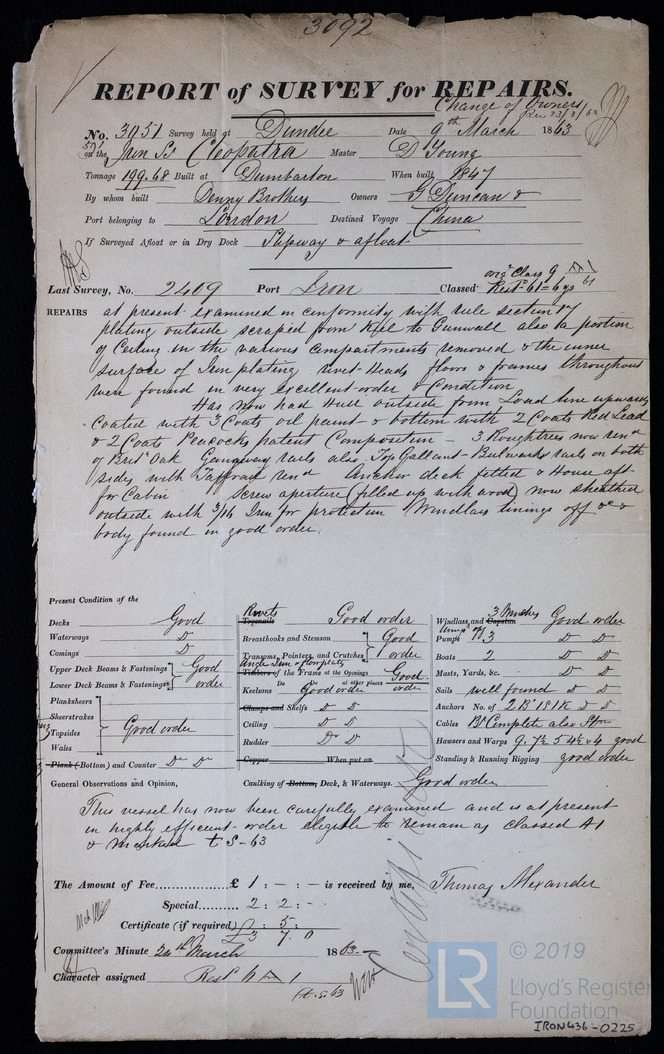 3092
REPORT of SURVEY for REPAIRS.
Change of Owners
Rec 23/3/63
No. 3051 Survey held at Dundee Date 9th March 1863
591 on the Iron Sr Cleopatra Master D Young
Tonnage 199.68 Built at Dumbarton When built 1847
By whom built Denny Brothers Owners G Duncan &
Port belonging to London Destined Voyage China
If Surveyed Afloat or in Dry Dock Slipway & afloat
Last Survey, No. 2409 Port Iron Classed orig. Class 9 A1
Restd 61 = 6 ys 61
REPAIRS at present examined in conformity with rule section 57
plating outside scraped from Keel to Gunwall also a portion
of Ceiling in the various compartments removed & the inner
surface of Iron plating rivet-heads floors & frames throughout
were found in very excellent order & Condition
Has now had Hull outside from Load line upwards
coated with 3 Coats oil paint & bottom with 2 Coats Red Lead
& 2 Coats Peacocks patent Composition - 3 Roughtrees now rend
of Brit Oak Gangway rails also TopGallant-Bulwarks rails on both
sides with Taffrail rend Anchor deck fitted & House aft
for Cabin Screw aperture (filled up with wood) now sheathed
outside with 3/16 Iron for protection Windlass linings off &
body found in good order.
Present Condition of the
Decks Good
Waterways Do
Comings Do
Upper Deck Beams & Fastenings Good
Lower Deck Beams & Fastenings order
Planksheers
Sheerstrakes
Topsides Good order
Wales
Plank (Bottom) and Counter Do Do
Rivets
Treenails Good order
Breasthooks and Stemson Good
Transoms, Pointers, and Crutches order
Angle Iron & floorplates
Timbers of the Frame at the Openings Good
Do Do at other places order
Keelsons Good order
Clamps and Shelfs Do Do
Ceiling Do Do
Rudder Do Do
Copper When put on
Caulking of Bottom, Deck, & Waterways. Good order
3 Winches
Windlass and Capstan Good order
Pumps 3 Do Do
Boats 2 Do Do
Masts, Yards, &c. Do Do
Sails well found Do Do
Anchors No. of 2 B 1 S 1 K Do Do
Cables Bt Complete also Stm
Hausers and Warps 9. 7½ 5 4½ & 4 good
Standing & Running Rigging good order
General Observations and Opinion,
This vessel has now been carefully examined and is at present
in highly efficient order eligible to remain as classed A1
& marked t S-63
The Amount of Fee £ 1 : - : - is received by me, Thomas Alexander
Special 2 : 2 : -
Certificate (if required) : 5 :
£3 7. 0
Committee's Minute 24th March 1863
Character assigned Restd 6 A 1
t.s. 63
© 2019
LR
Lloyd's Register
Foundation
IRON436-0225